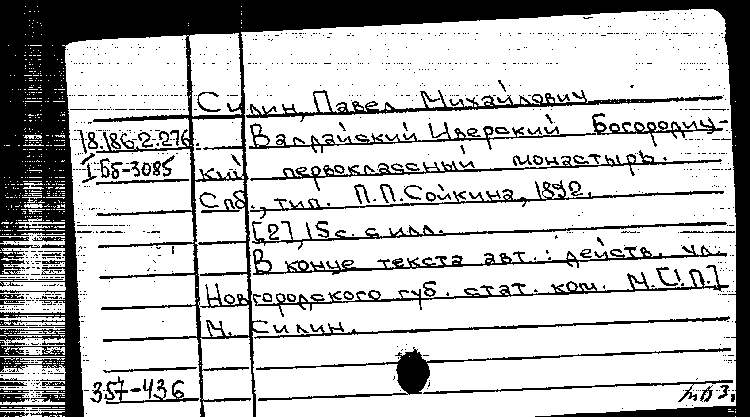 Силин, Павел Михайлович
18.186.2.276. Валдайский Иверский Богородиц-
I Бб-3085 кий первоклассный монастырь.
Спб., тип. П.П.Сойкина, 1892.
[2], 15 с. с илл.
В конце текста авт.: действ. чл.
Новгородского губ. стат. ком. М.[!П.]
М. Силин.
357-436